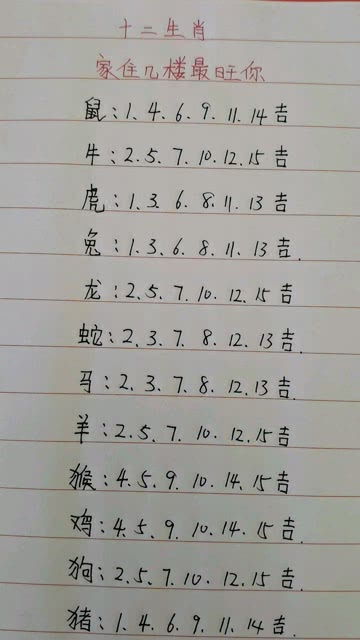 十二生肖
家住几楼最旺你
鼠：1.4.6.9.11.14吉
牛：2.5.7.10.12.15吉
虎：1.3.6.8.11.13吉
兔：1.3.6.8.11.13吉.
龙：2.5.7.10.12.15吉
蛇：2.3.7.8.12.13吉.
马：2.3.7.8.12.13吉.
羊：2.5.7.10.12.15吉
猴：4.5.9.10.14.15吉
鸡：4.5.9.10.14.15吉
狗：2.5.7.10.12.15吉
猪：1.4.6.9.11.14吉.